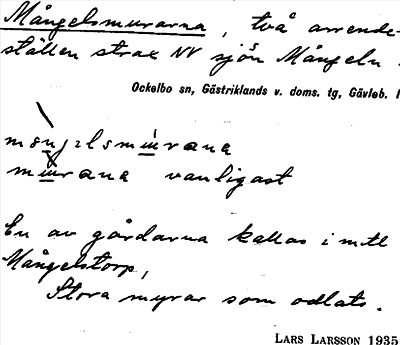 Mångelsmurarna, två arrende-
ställen strax NV sjön Mångeln.
Ockelbo sn, Gästriklands v. doms. tg, Gävleb. l
murana vanligast
En av gårdarna kallas i mtl
Mångelstorp,
Stora myrar som odlats.
LARS LARSSON 1935